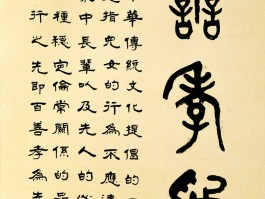 孝
華傳統文化提倡的
指兒女的行為不應
中長輩以及先人的
種穩定倫常關係的
行之先即百善孝為先